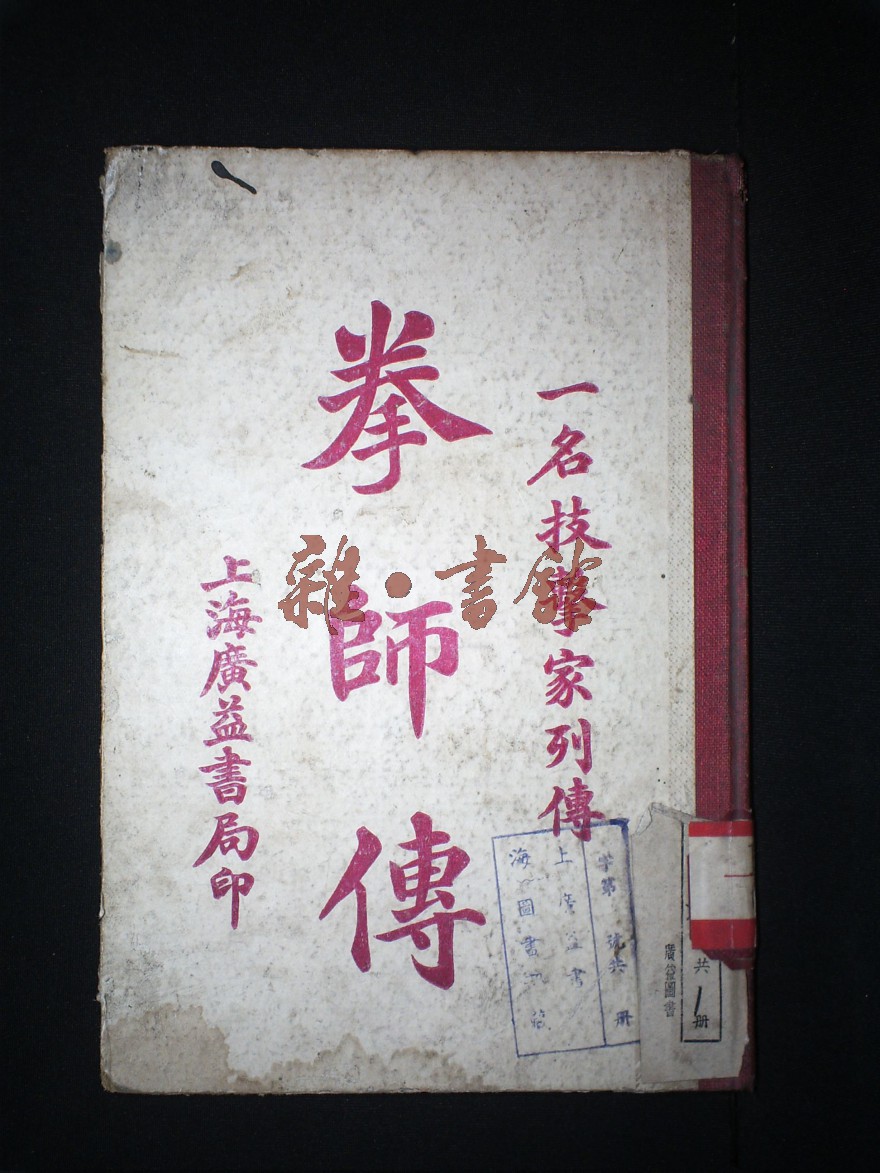 一名技擊家列傳
拳師傳
上海廣益書局印
雜·書館
字第 號共 冊
上 廣益書
海 圖書
共1册
廣益圖書